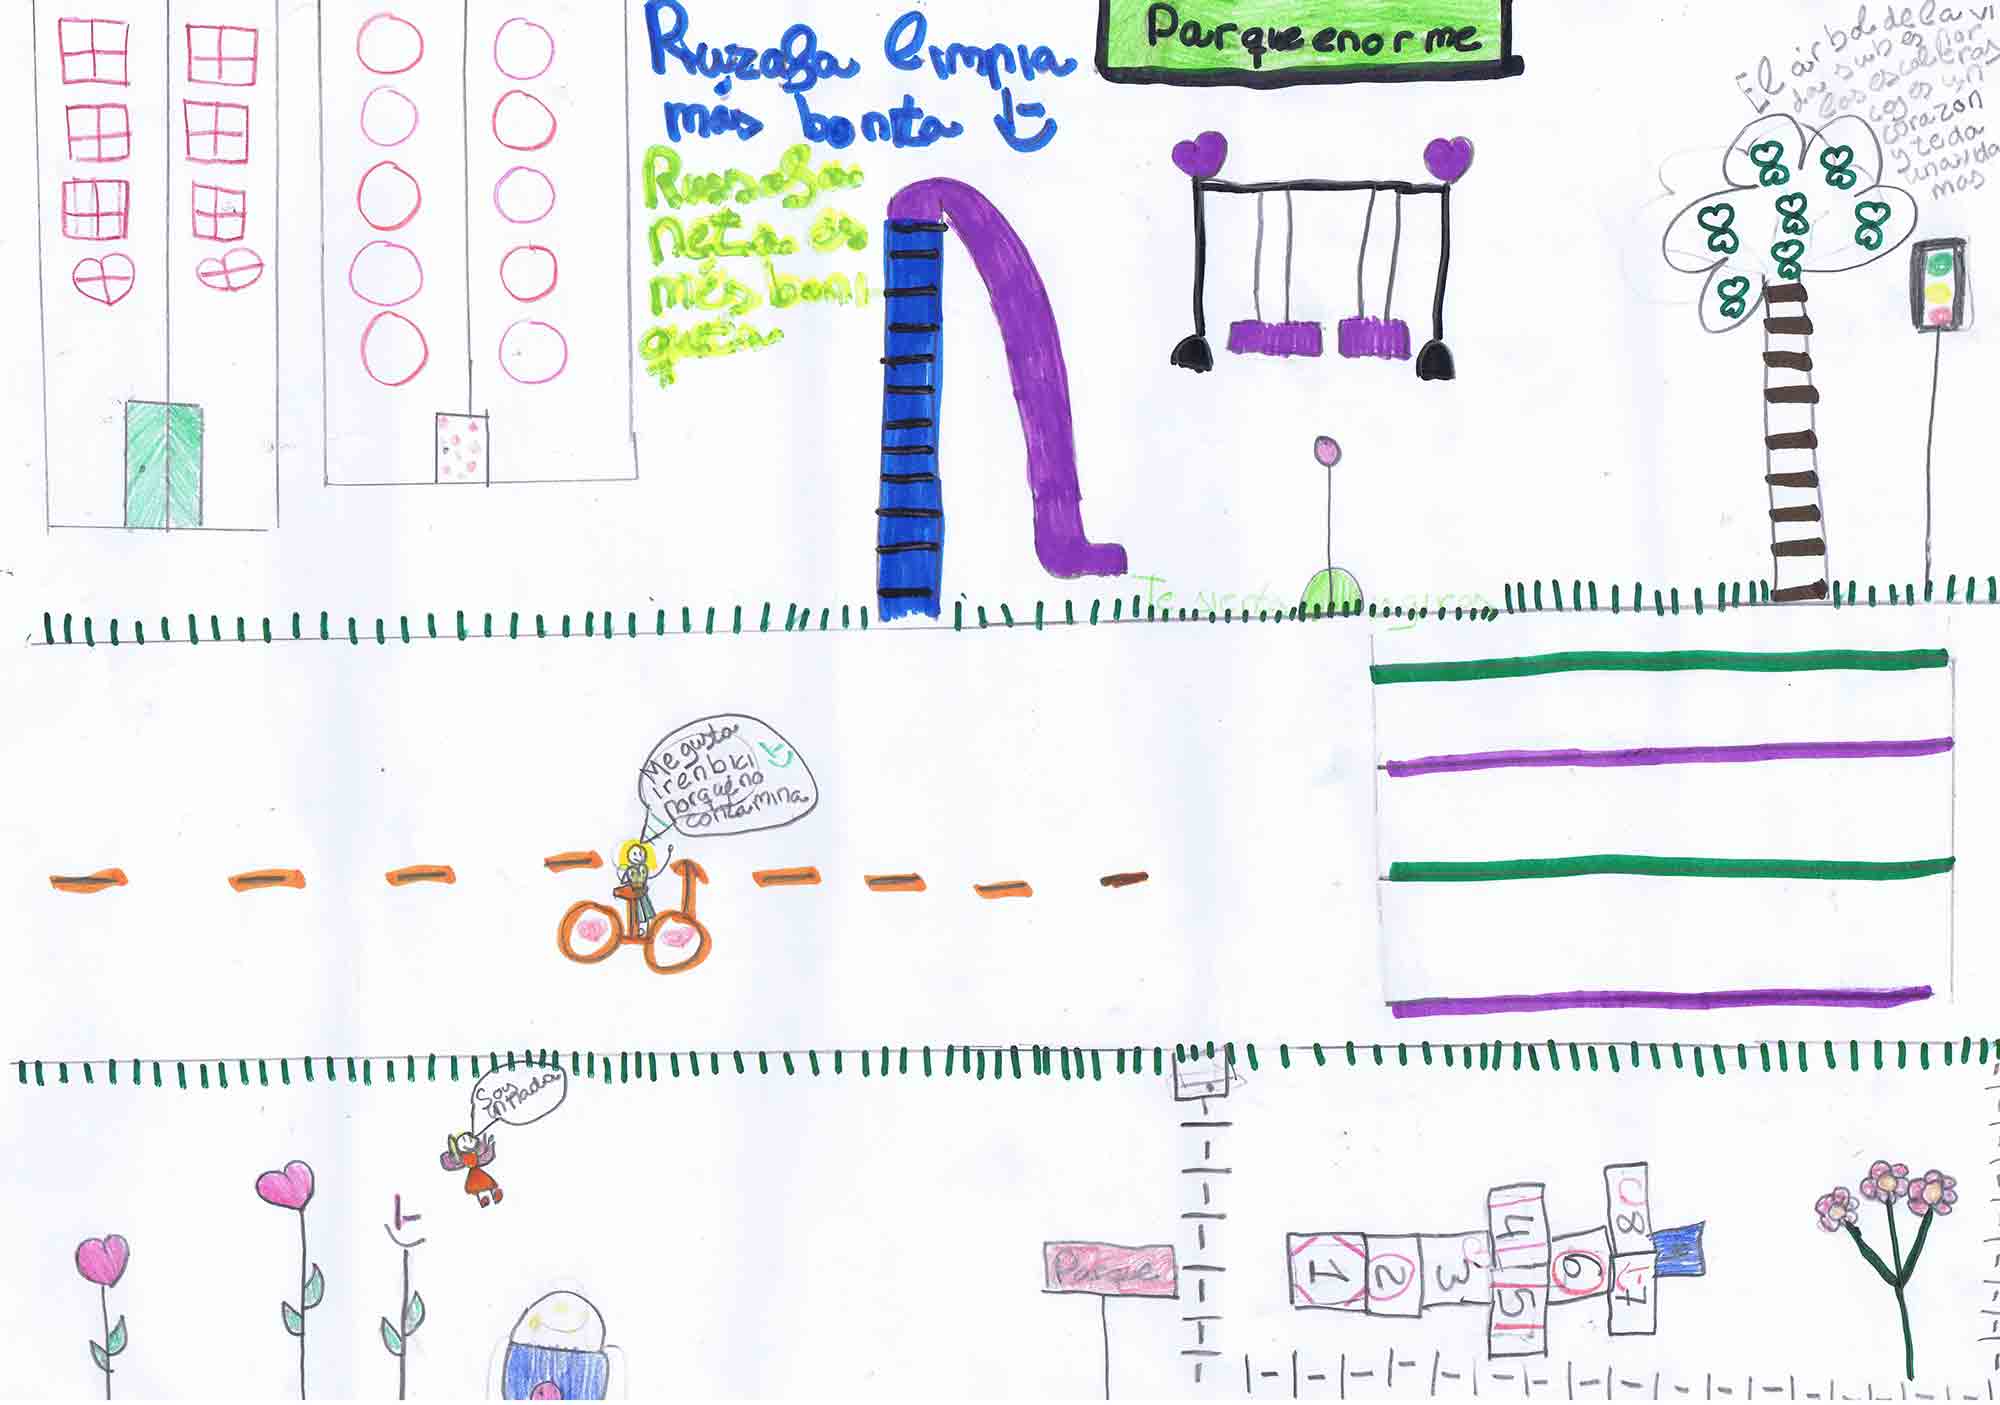 Ruzafa limpia
más bonita
Russafa
neta és
més boni
queta
Parque enorme
El árbol de la vi
das subes por
las escaleras
coges un
corazon
y te da
una vida
mas
Te sientas
Me gusta
ir en bici
porque no
contamina
Soy
un hada
Parque
1
2
3
4
5
6
7
8